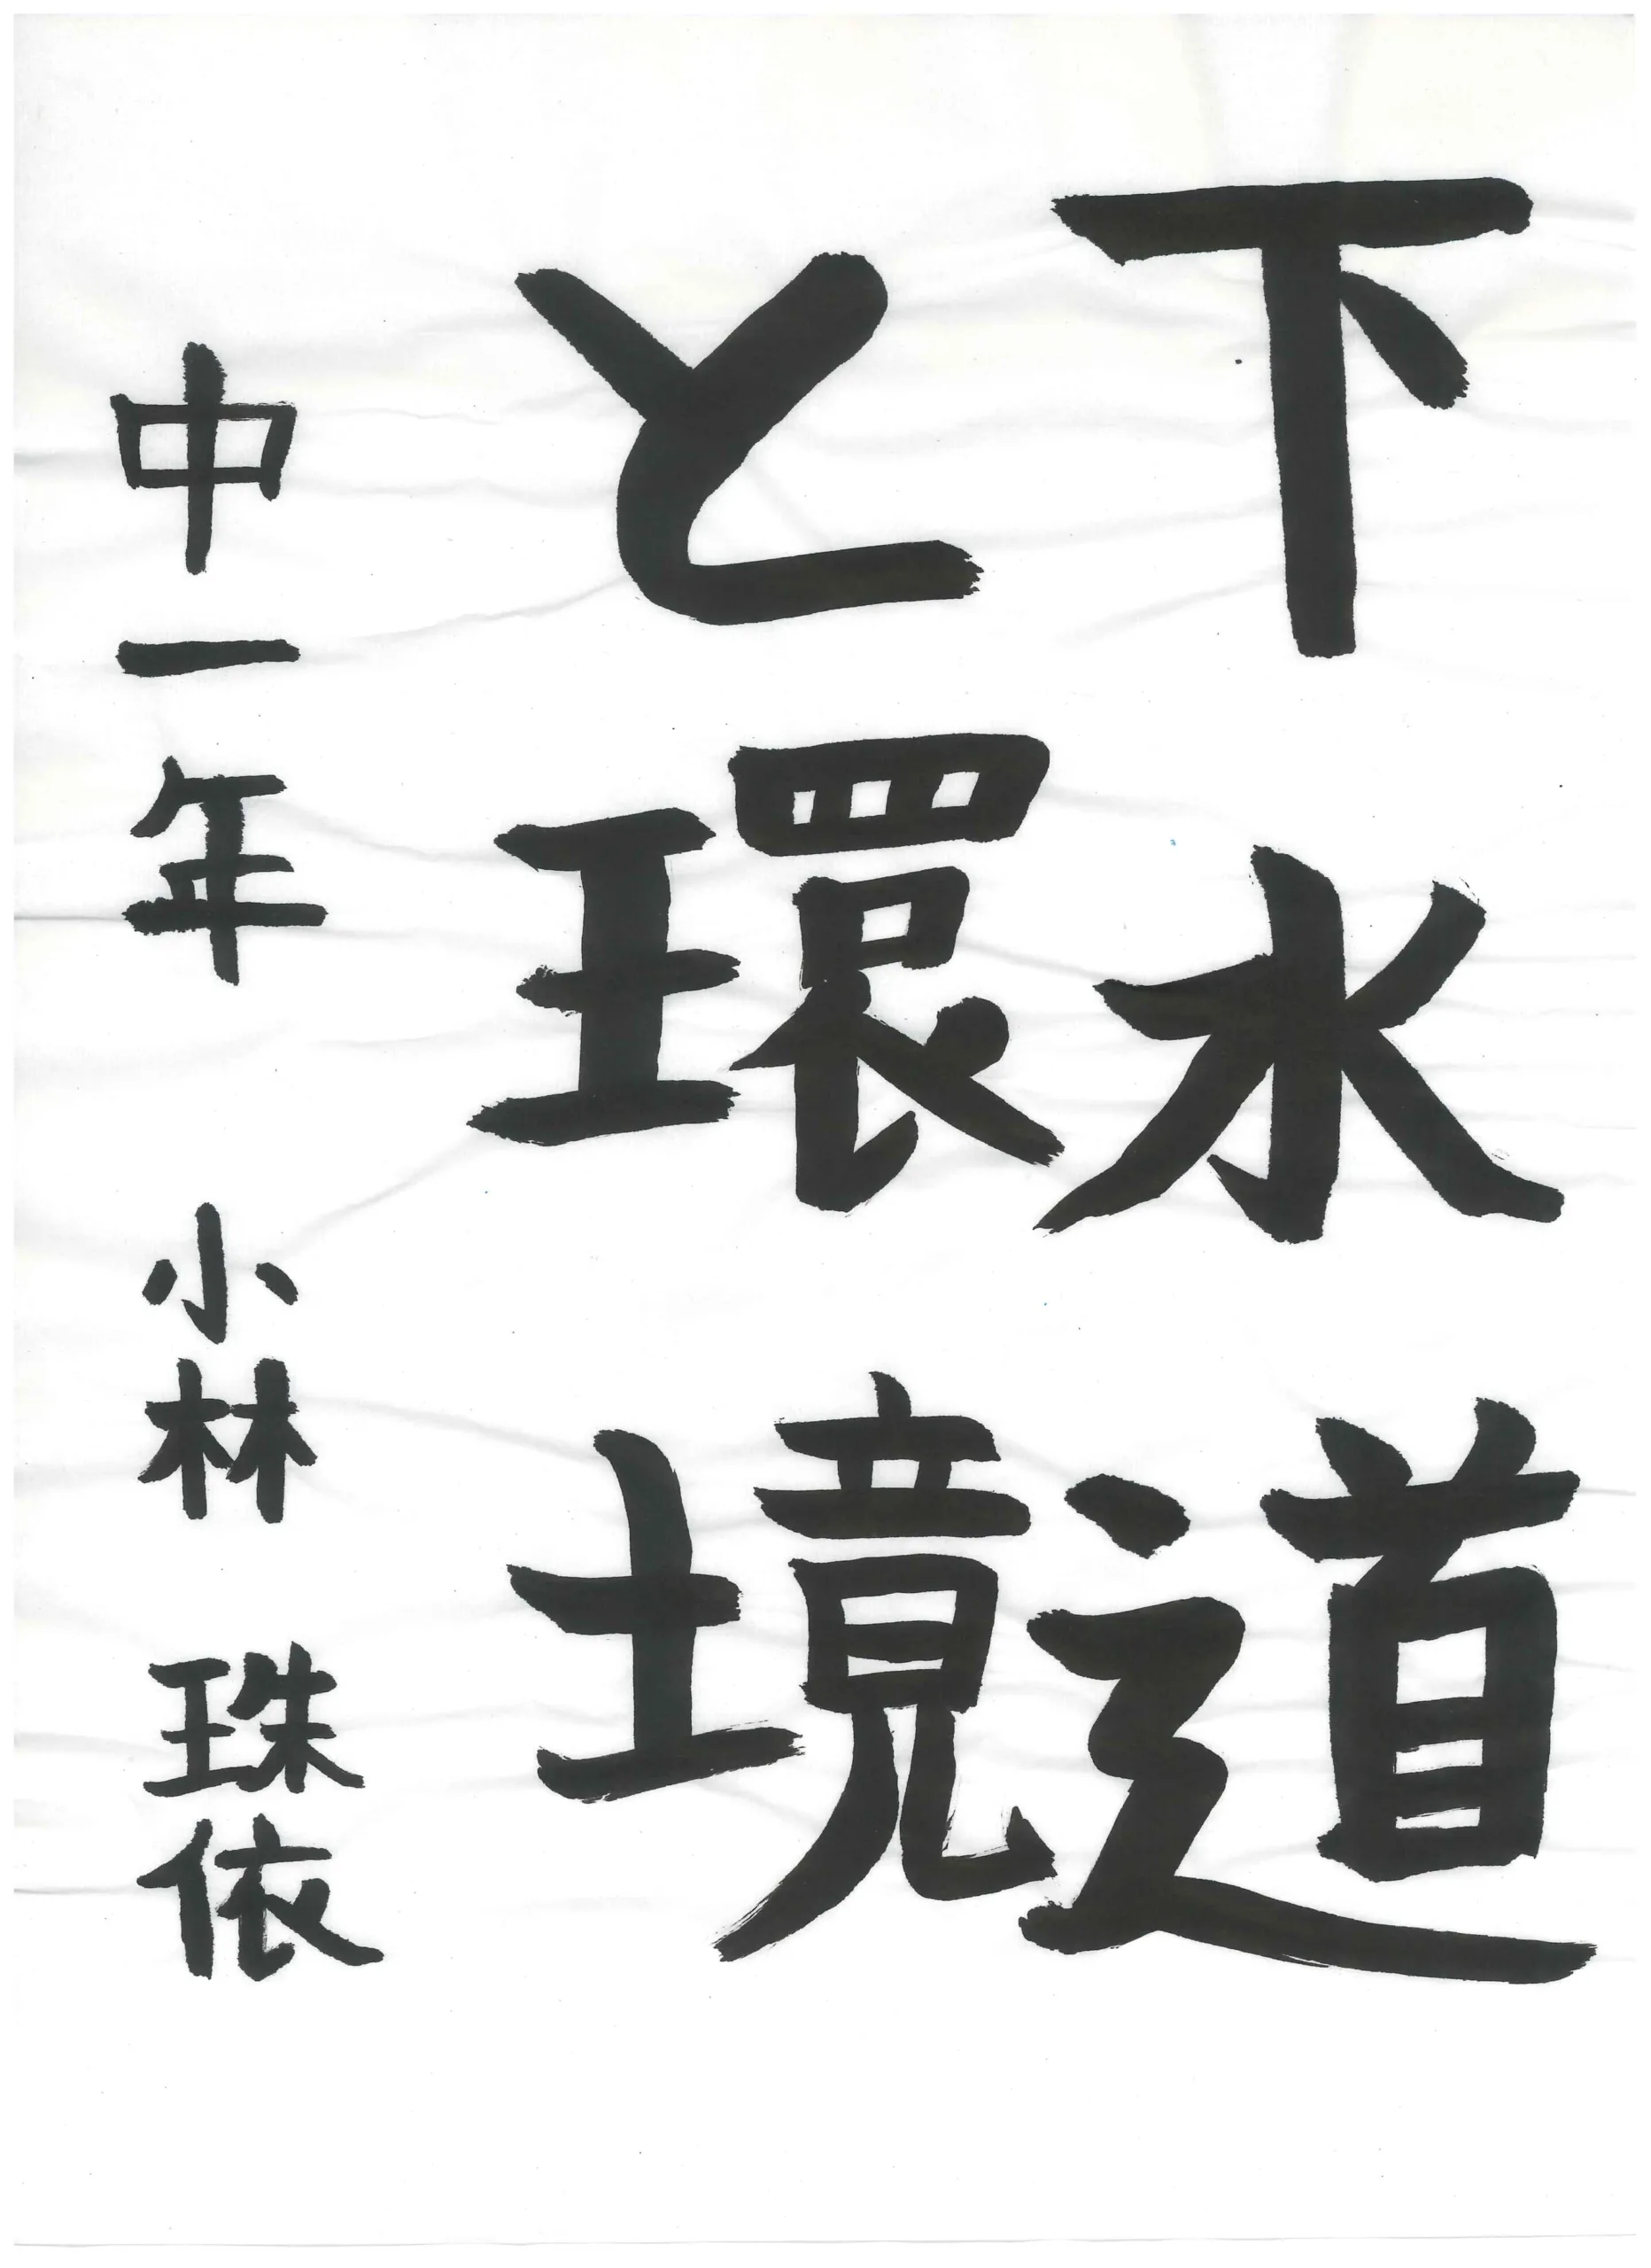 下水道
と環境
中一年 小林 珠依